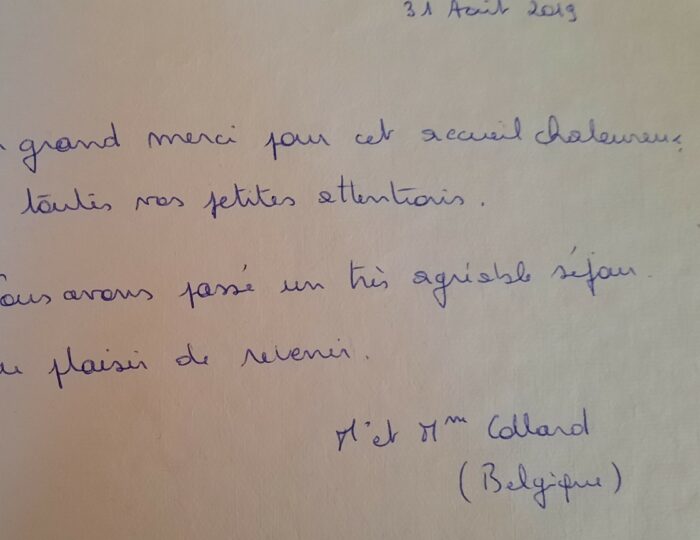 31 Août 2019
grand merci pour cet accueil chaleureux
toutes vos petites attentions.
ous avons passé un très agréable séjour.
plaisir de revenir.
Mr et Mme Collard
(Belgique)